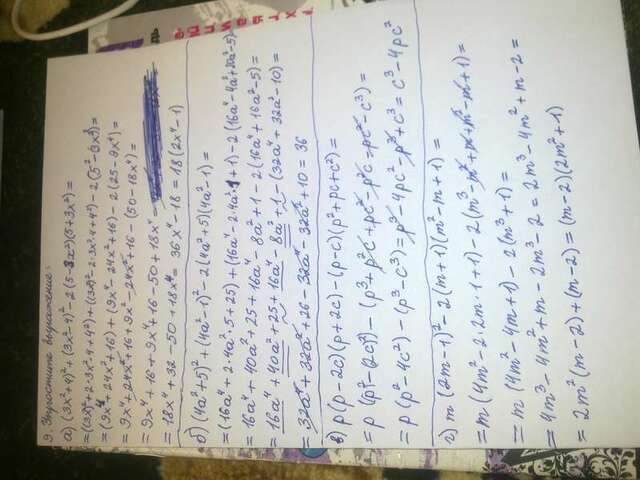 9. Упростите выражение:
а) (3x²+4)²+(3x²-4)²-2(5-3x²)(5+3x²)=
=(3x²)²+2·3x²·4+4²)+((3x²)²-2·3x²·4+4²)-2(5²-(3x²)²)=
=(9x⁴+24x²+16)+(9x⁴-24x²+16)-2(25-9x⁴)=
=9x⁴+24x²+16+9x²-24x²+16-(50-18x⁴)=
=9x⁴+16+9x⁴+16-50+18x⁴=
=18x⁴+32-50+18x⁴=36x⁴-18=18(2x⁴-1)
б) (4a²+5)²+(4a²-1)²-2(4a²+5)(4a²-1)=
=(16a⁴+2·4a²·5+25)+(16a⁴-2·4a²·1+1)-2(16a⁴-4a²+20a²-5)=
=16a⁴+40a²+25+16a⁴-8a²+1-2(16a⁴+16a²-5)=
=16a⁴+40a²+25+16a⁴-8a²+1-(32a⁴+32a²-10)=
=32a⁴+32a²+26-32a⁴-32a²+10=36
в) p(p-2c)(p+2c)-(p-c)(p²+pc+c²)=
=p(p²-(2c)²)-(p³+p²c+pc²-p²c-pc²-c³)=
=p(p²-4c²)-(p³-c³)=p³-4pc²-p³+c³=c³-4pc²
г) m(2m-1)²-2(m+1)(m²-m+1)=
=m(4m²-2·2m·1+1)-2(m³-m²+m+m²-m+1)=
=m(4m²-4m+1)-2(m³+1)=
=4m³-4m²+m-2m³-2=2m³-4m²+m-2=
=2m²(m-2)+(m-2)=(m-2)(2m²+1)